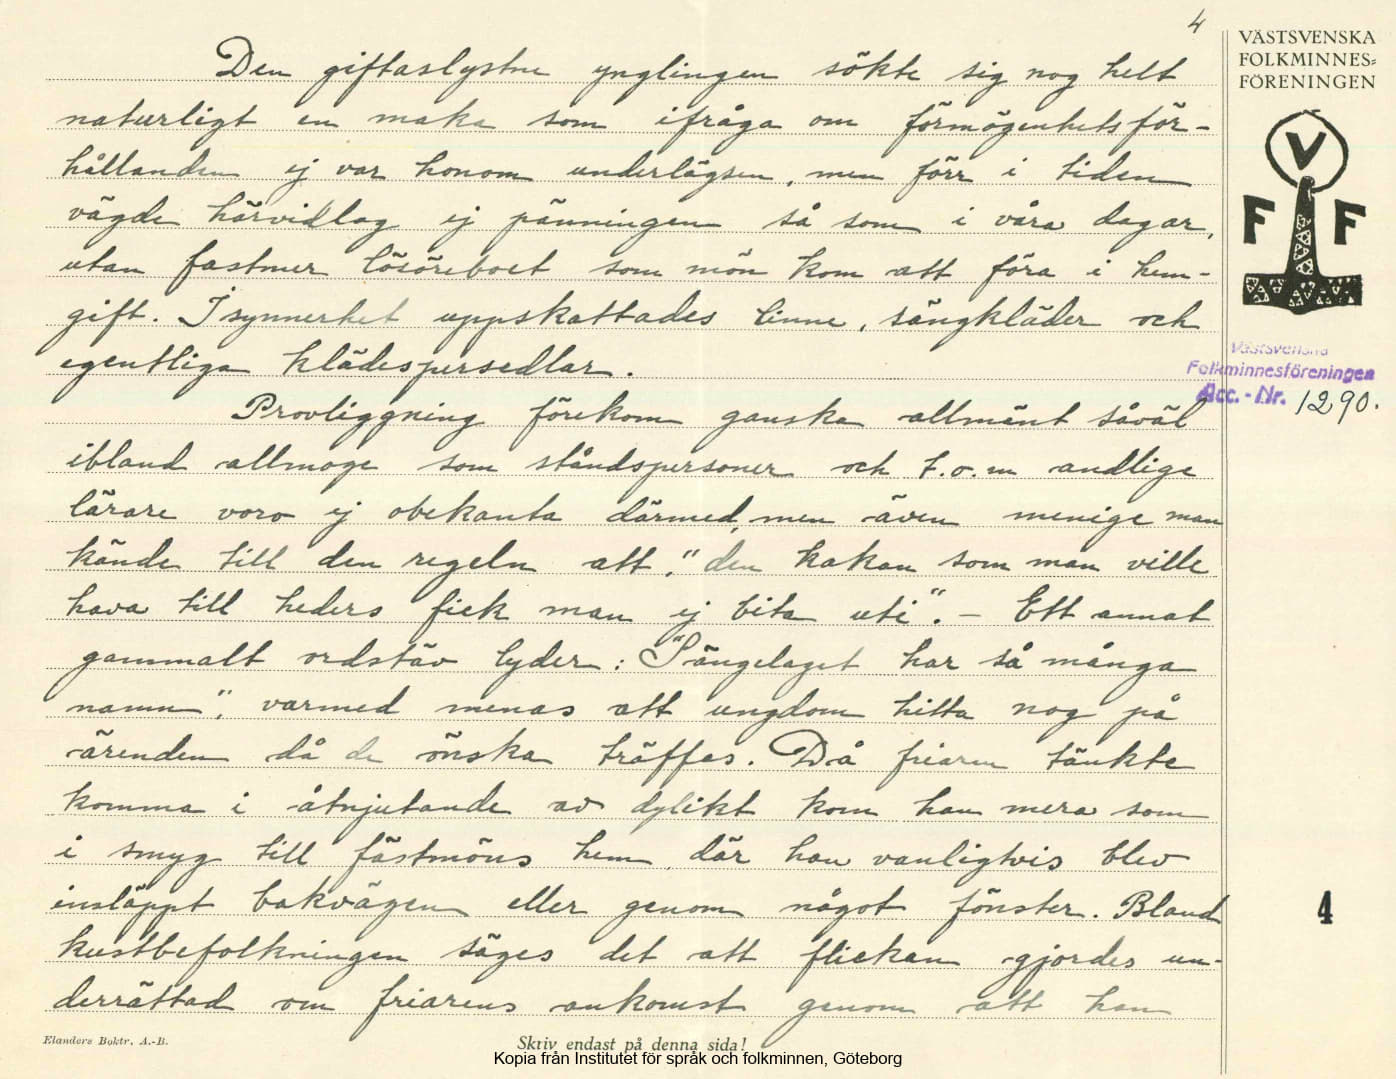 4
VÄSTSVENSKA
FOLKMINNES=
FÖRENINGEN
V
F F
Västsvenska
Folkminnesföreningen
Acc.-Nr. 1290.
Den giftaslystne ynglingen sökte sig nog helt
naturligt en maka som ifråga om förmögenhetsför-
hållanden ej var honom underlägsen, men förr i tiden
vägde härvidlag ej pänningen så som i våra dagar,
utan fastmer lösöreboet som mön kom att föra i hem-
gift. I synnerhet uppskattades linne, sängkläder och
egentliga klädespersedlar.
Provliggning förekom ganska allmänt såväl
ibland allmoge som ståndspersoner och t.o.m andlige
lärare voro ej obekanta därmed, men även menige man
kände till den regeln att, "den kakan som man ville
hava till heders fick man ej bita uti". – Ett annat
gammalt ordstäv lyder: "Sängelaget har så många
namn", varmed menas att ungdom hitta nog på
ärenden då de önska träffas. Då friaren tänkte
komma i åtnjutande av dylikt kom han mera som
i smyg till fästmöns hem, där han vanligtvis blev
insläppt bakvägen eller genom något fönster. Bland
kustbefolkningen säges det att flickan gjordes un-
derrättad om friarens ankomst genom att han
4
Elanders Boktr. A.-B.
Skriv endast på denna sida!
Kopia från Institutet för språk och folkminnen, Göteborg